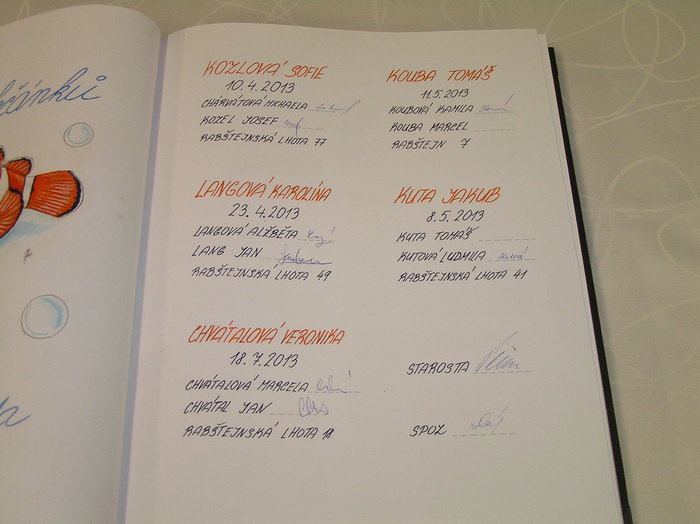 KOZLOVÁ SOFIE
10.4.2013
CHARVÁTOVÁ MICHAELA
KOZEL JOSEF
RABŠTEJNSKÁ LHOTA 77
KOUBA TOMÁŠ
11.5.2013
KOUBOVÁ KAMILA
KOUBA MARCEL
RABŠTEJN 7
LANGOVÁ KAROLÍNA
23.4.2013
LANGOVÁ ALŽBĚTA
LANG JAN
RABŠTEJNSKÁ LHOTA 49
KUTA JAKUB
8.5.2013
KUTA TOMÁŠ
KUTOVÁ LUDMILA
RABŠTEJNSKÁ LHOTA 41
CHVÁTALOVÁ VERONIKA
18.7.2013
CHVÁTALOVÁ MARCELA
CHVÁTAL JAN
RABŠTEJNSKÁ LHOTA 18
STAROSTA
SPOZ